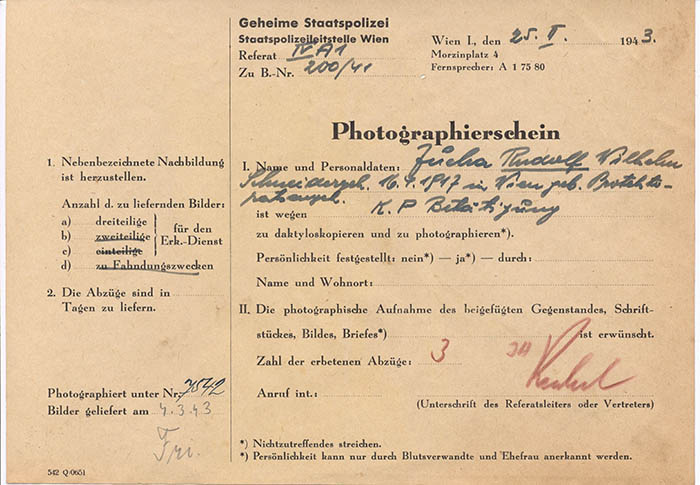 Geheime Staatspolizei
Staatspolizeileitstelle Wien
Referat IV A1
Zu B.-Nr. 200/41
Wien I., den 25. II. 1943.
Morzinplatz 4
Fernsprecher: A 1 75 80
Photographierschein
1. Nebenbezeichnete Nachbildung
ist herzustellen.
Anzahl d. zu liefernden Bilder:
a) dreiteilige
b) zweiteilige
c) einteilige
d) zu Fahndungszwecken
für den
Erk.-Dienst
2. Die Abzüge sind in
Tagen zu liefern.
Photographiert unter Nr. 7542
Bilder geliefert am 4.3.43
I. Name und Personaldaten: Rudolf Wilhelm
Schneidergeh. 1917 in Wien geb.
ist wegen K.P. Betätigung
zu daktyloskopieren und zu photographieren*).
Persönlichkeit festgestellt: nein*) — ja*) — durch:
Name und Wohnort:
II. Die photographische Aufnahme des beigefügten Gegenstandes, Schrift-
stückes, Bildes, Briefes*) ist erwünscht.
Zahl der erbetenen Abzüge: 3
Anruf int.:
(Unterschrift des Referatsleiters oder Vertreters)
*) Nichtzutreffendes streichen.
*) Persönlichkeit kann nur durch Blutsverwandte und Ehefrau anerkannt werden.
542 Q/0651